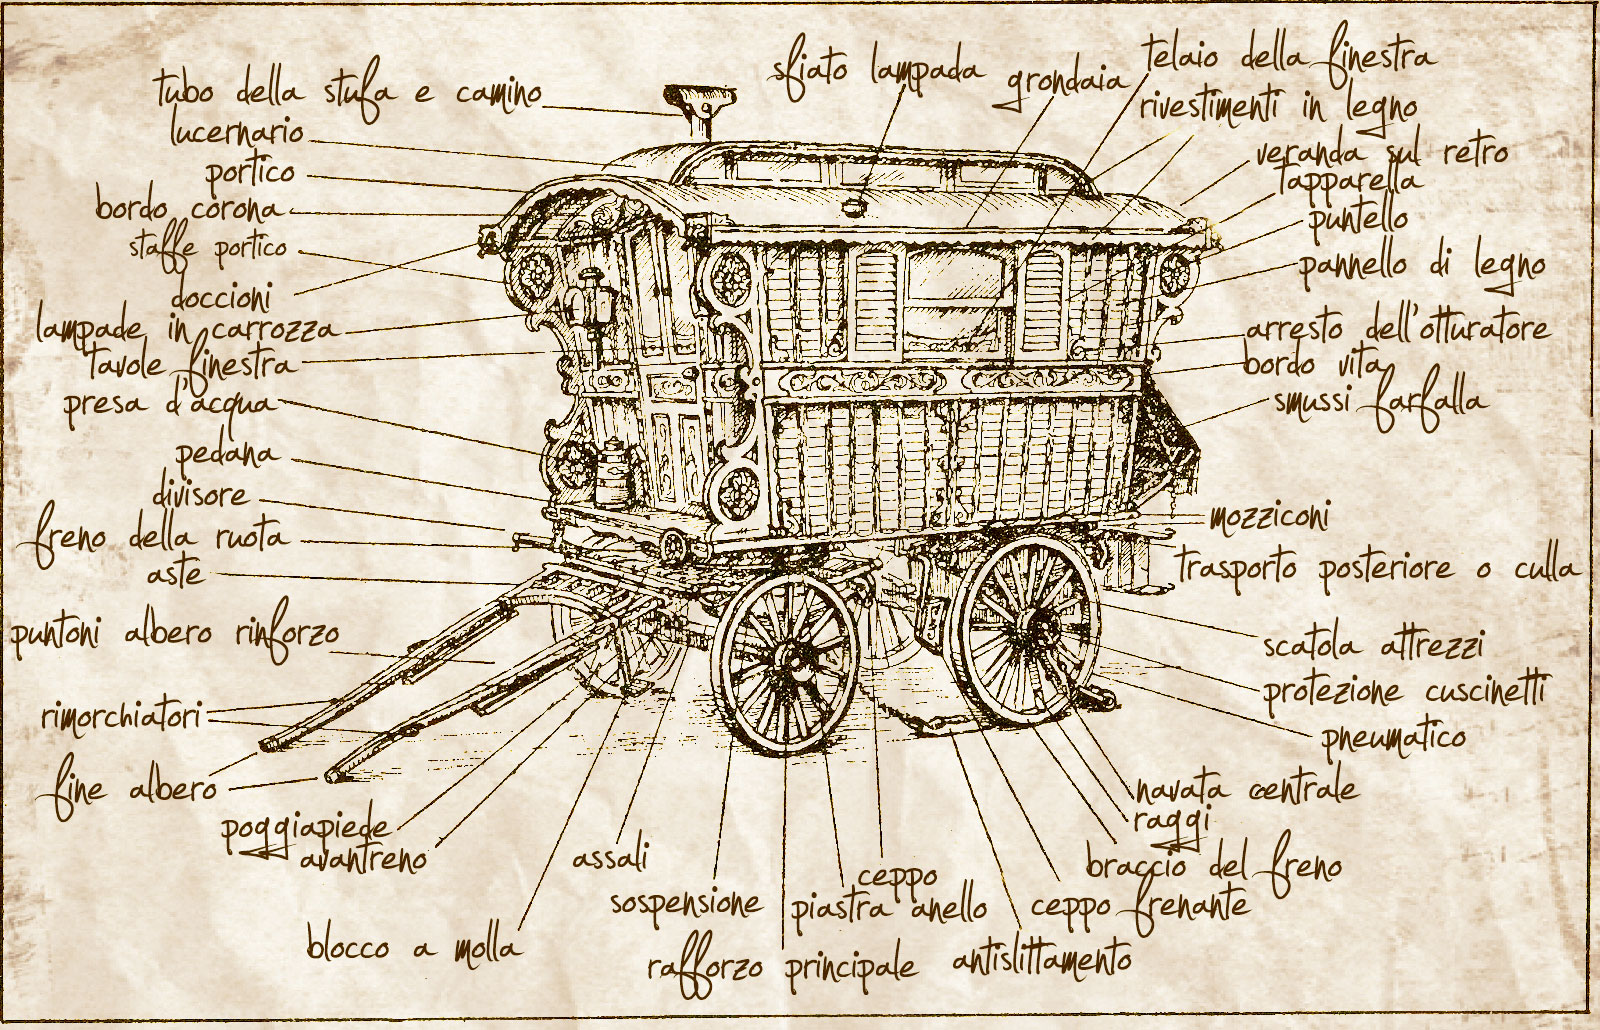 tubo della stufa e camino
lucernario
portico
bordo corona
staffe portico
doccioni
lampade in carrozza
tavole finestra
presa d'acqua
pedana
divisore
freno della ruota
aste
puntoni albero rinforzo
rimorchiatori
fine albero
poggiapiede
avantreno
blocco a molla
assali
sospensione
rafforzo principale
piastra anello
ceppo
antislittamento
ceppo frenante
braccio del freno
raggi
navata centrale
pneumatico
protezione cuscinetti
scatola attrezzi
trasporto posteriore o culla
mozziconi
smussi farfalla
bordo vita
arresto dell'otturatore
pannello di legno
puntello
Tapparella
veranda sul retro
rivestimenti in legno
telaio della finestra
grondaia
sfiato lampada